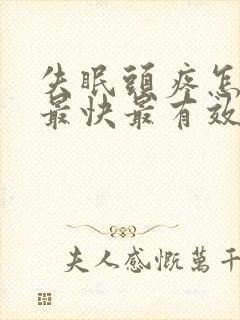 失眠頭疼怎
最快最有效
夫人感慨萬千